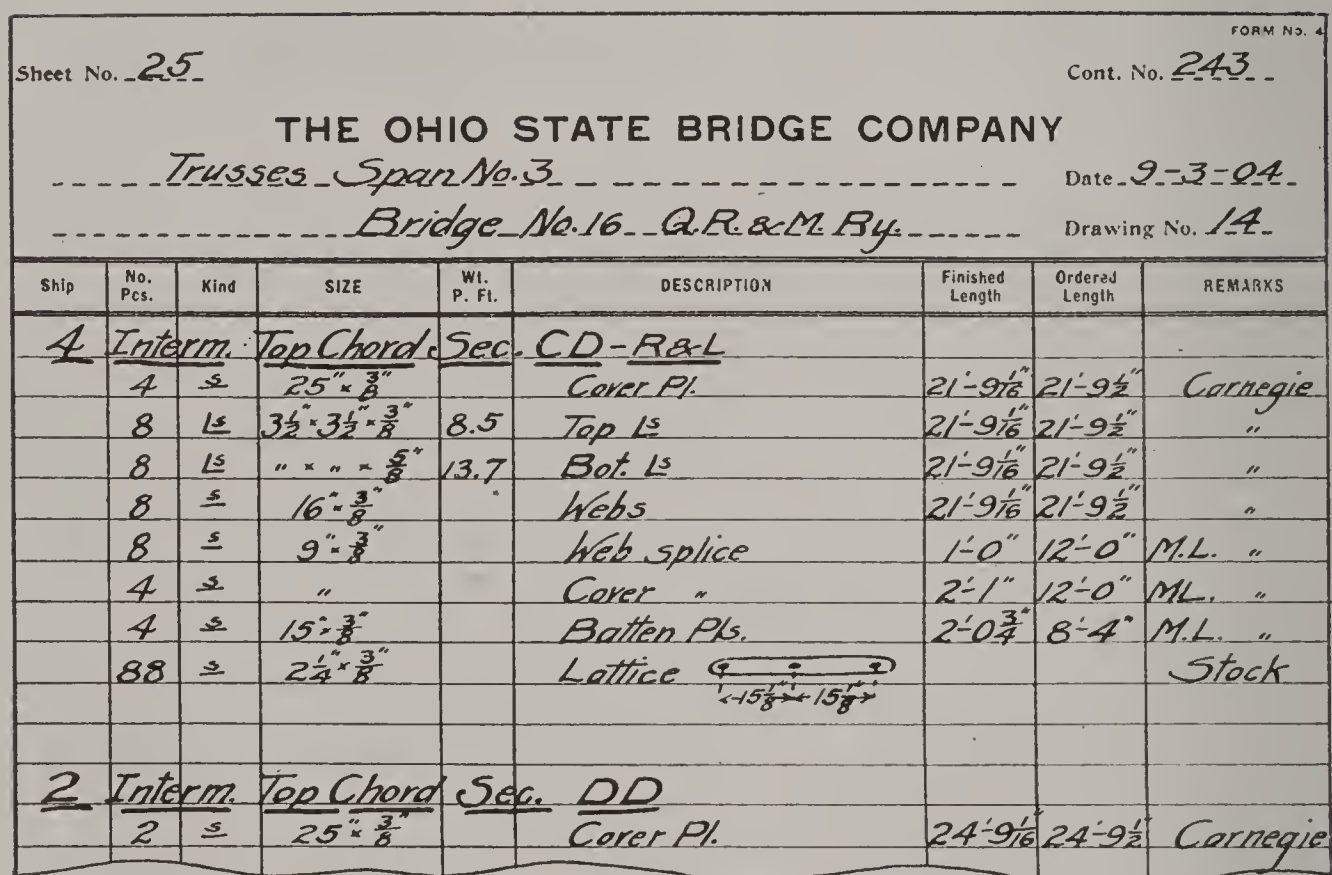 FORM No. 4
Sheet No. 25 Cont. No. 243
THE OHIO STATE BRIDGE COMPANY
Trusses Span No. 3 Date 9-3-04
Bridge No. 16 Q.R. & M. Ry. Drawing No. 14
Ship No. Pcs. Kind SIZE Wt. P. Ft. DESCRIPTION Finished Length Ordered Length REMARKS
4 Interm. Top Chord Sec. CD-R&L
4 s 25" × 3/8" Cover Pl. 21'-9 1/16" 21'-9 1/2" Carnegie
8 Ls 3 1/2" × 3 1/2" × 3/8" 8.5 Top Ls 21'-9 1/16" 21'-9 1/2" "
8 Ls " × " × 5/8" 13.7 Bot. Ls 21'-9 1/16" 21'-9 1/2" "
8 s 16" × 3/8" Webs 21'-9 1/16" 21'-9 1/2" "
8 s 9" × 3/8" Web splice 1'-0" 12'-0" M.L. "
4 s " Cover " 2'-1" 12'-0" ML. "
4 s 15" × 3/8" Batten Pls. 2'-0 3/4" 8'-4" M.L. "
88 s 2 1/4" × 3/8" Lattice Stock
15 1/8" 15 1/8"
2 Interm. Top Chord Sec. DD
2 s 25" × 3/8" Cover Pl. 24'-9 1/16" 24'-9 1/2" Carnegie